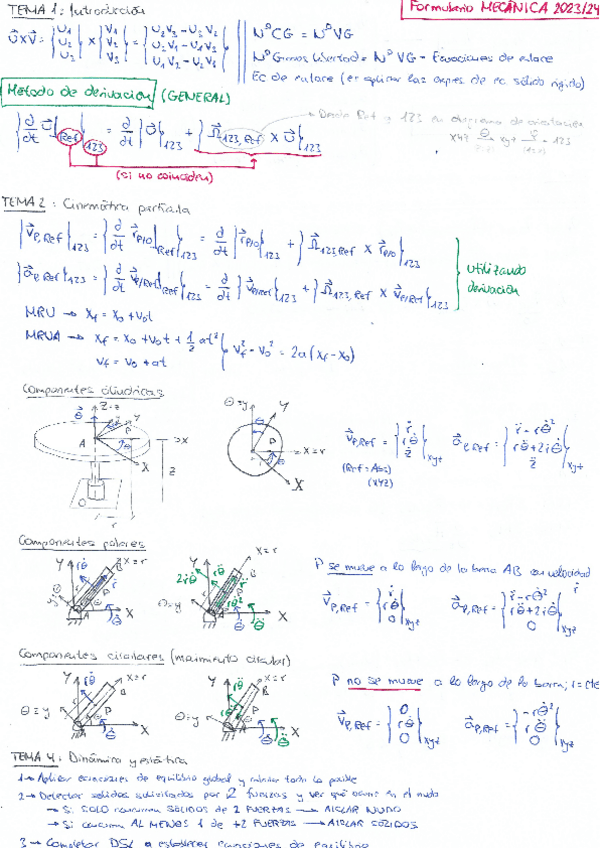 TEMA 1: Introducción
Formulario MECÁNICA 2023/24
U×V = {U1 U2 U3} × {V1 V2 V3} = {U2V3 - U3V2, U3V1 - U1V3, U1V2 - U2V1}
NºCG = NºVG
Nº Grados libertad = Nº VG - Ecuaciones de enlace
Ec de enlace (er aplicar las de ec sólido rígido)
Método de derivación (GENERAL)
{d/dt U|Ref}123 = d/dt {U}123 + {Ω123,Ref × U}123
Desde Ref y 123 en diagrama de
XYZ θ xyz 123
(si no coinciden)
TEMA 2: Cinemática partícula
{vP,Ref}123 = {d/dt rP/O|Ref}123 = d/dt {rP/O}123 + {Ω123,Ref × rP/O}123
{aP,Ref}123 = {d/dt vP/Ref|Ref}123 = d/dt {vP/Ref}123 + {Ω123,Ref × vP/Ref}123
Utilizando derivación
MRU → xf = x0 + v0t
MRUA → xf = x0 + v0t + 1/2 at²
vf = v0 + at
vf² - v0² = 2a(xf - x0)
Componentes cilíndricas
vP,Ref = {ṙ, rθ̇, ż}xyz
aP,Ref = {r̈ - rθ̇², rθ̈ + 2ṙθ̇, z̈}xyz
(Ref = Abs)
(XYZ)
Componentes polares
P se mueve a lo largo de la barra AB con velocidad ṙ
vP,Ref = {ṙ, rθ̇, 0}xyz
aP,Ref = {r̈ - rθ̇², rθ̈ + 2ṙθ̇, 0}xyz
Componentes circulares (movimiento circular)
P no se mueve a lo largo de la barra; r = cte
vP,Ref = {0, rθ̇, 0}xyz
aP,Ref = {-rθ̇², rθ̈, 0}xyz
TEMA 4: Dinámica y estática
1 → Aplicar ecuaciones de equilibrio global y todo lo posible
2 → Detectar sólidos solicitados por 2 fuerzas y ver qué ocurre en el nudo
→ Si SOLO concurren SÓLIDOS de 2 FUERZAS → AISLAR NUDO
→ Si concurren AL MENOS 1 de +2 FUERZAS → AISLAR SÓLIDOS
3 → Completar DSL establecer ecuaciones de equilibrio